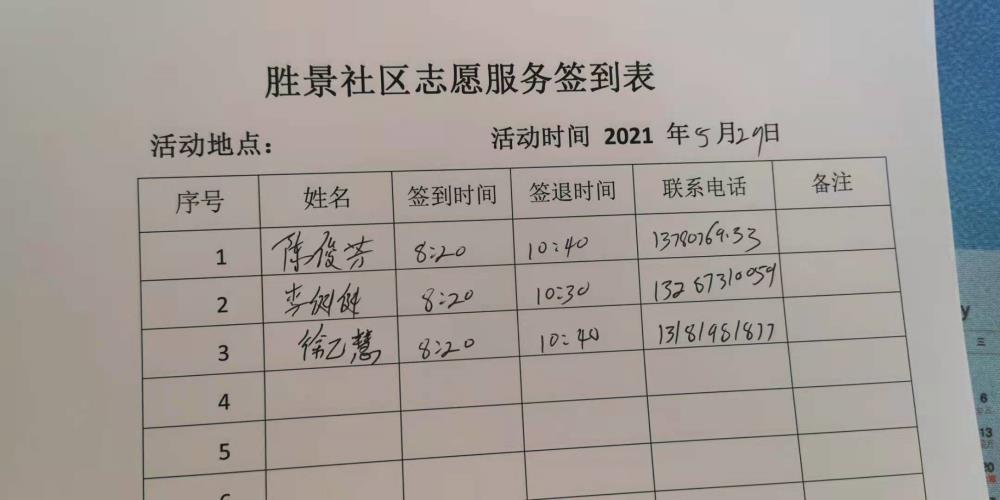 胜景社区志愿服务签到表
活动地点： 活动时间 2021 年5月29日
序号 姓名 签到时间 签退时间 联系电话 备注
1 陈俊芳 8:20 10:40
2 李 8:20 10:30 13267310059
3 徐乙慧 8:20 10:40 13181981877
4
5
6
三
6
13
20